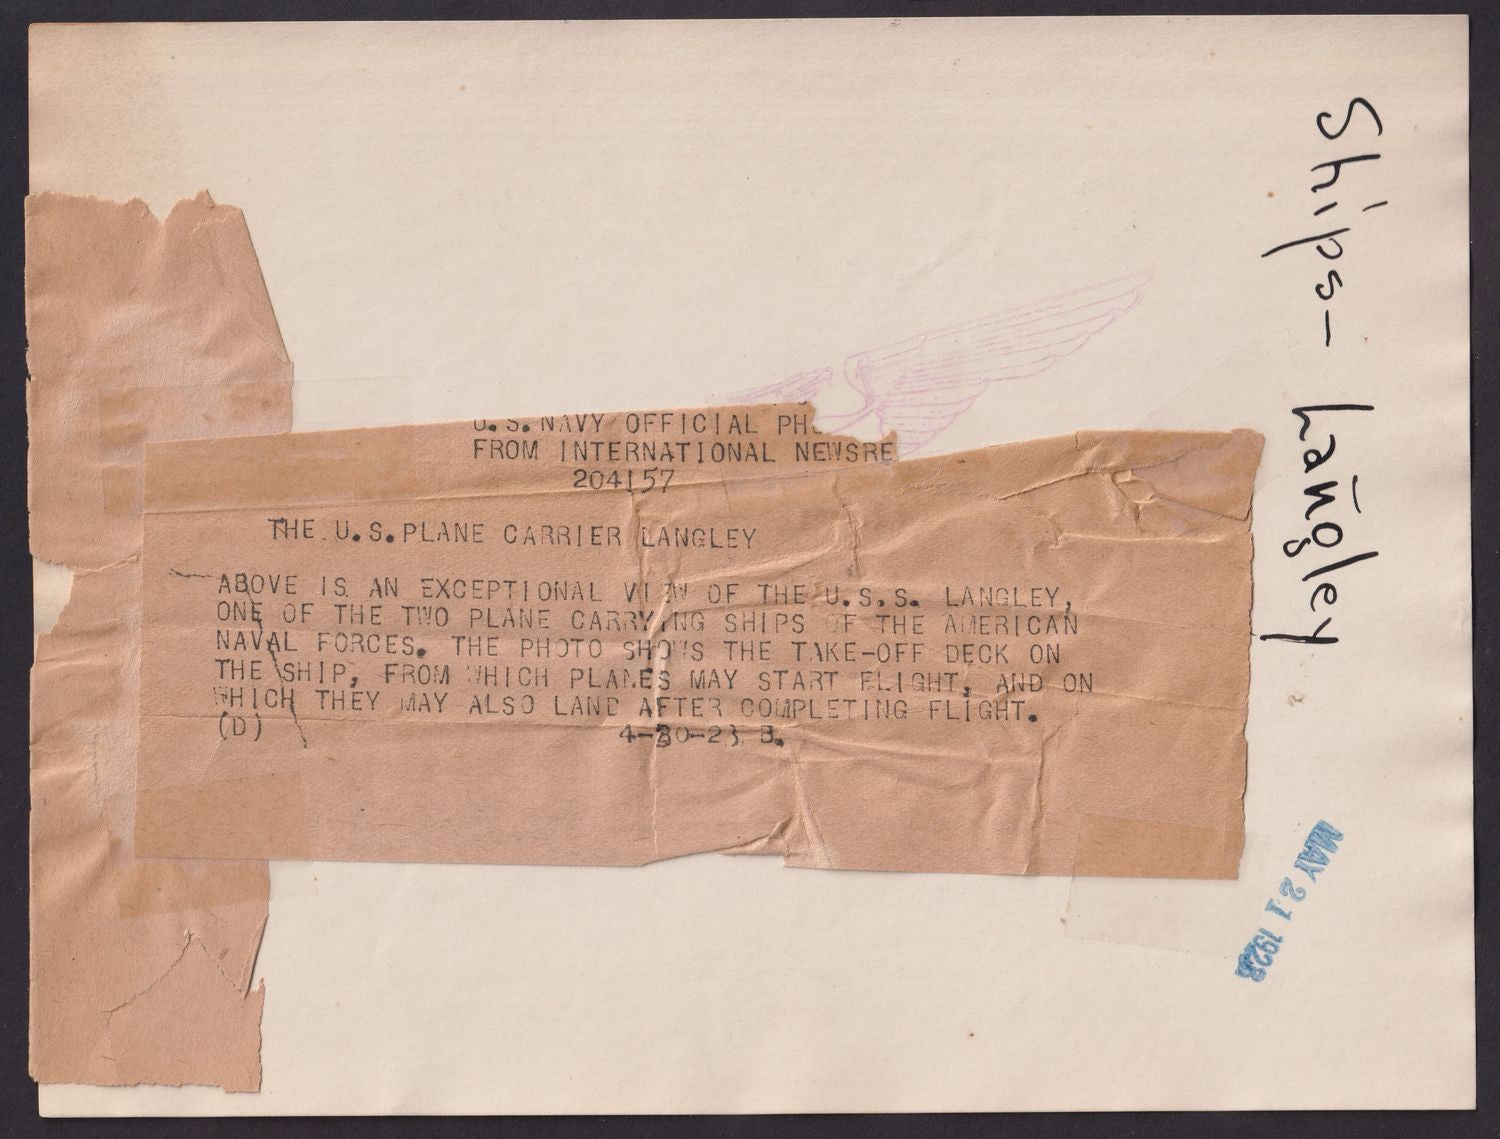 U.S. NAVY OFFICIAL
FROM INTERNATIONAL NEWSRE
204157
THE U.S. PLANE CARRIER LANGLEY
ABOVE IS AN EXCEPTIONAL VIEW OF THE U.S.S. LANGLEY,
ONE OF THE TWO PLANE CARRYING SHIPS OF THE AMERICAN
NAVAL FORCES. THE PHOTO SHOWS THE TAKE-OFF DECK ON
THE SHIP, FROM WHICH PLANES MAY START FLIGHT, AND ON
WHICH THEY MAY ALSO LAND AFTER COMPLETING FLIGHT.
(D) 4-30-23 B.
Ships- Langley
MAY 21 1923